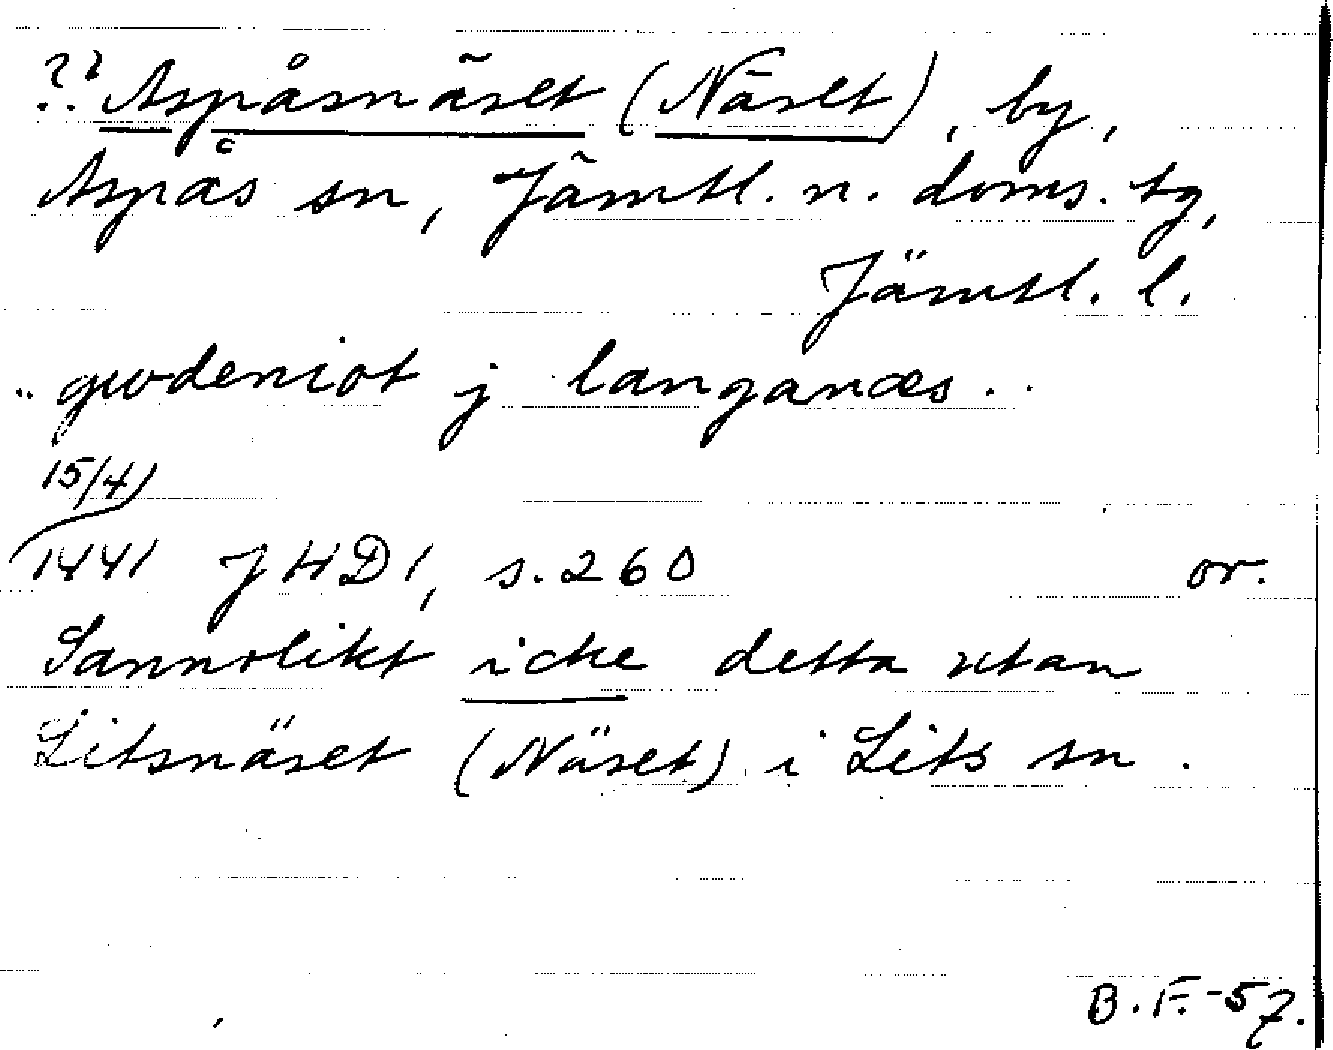 ?? Aspåsnäset (Näset), by,
Aspås sn, Jämtl. n. doms. tg,
Jämtl. l.
.. gudeniot j langanæs ..
15/4
1441 JHD 1, s. 260 or.
Sannolikt icke detta utan
Litsnäset (Näset) i Lits sn.
B. F. -57.